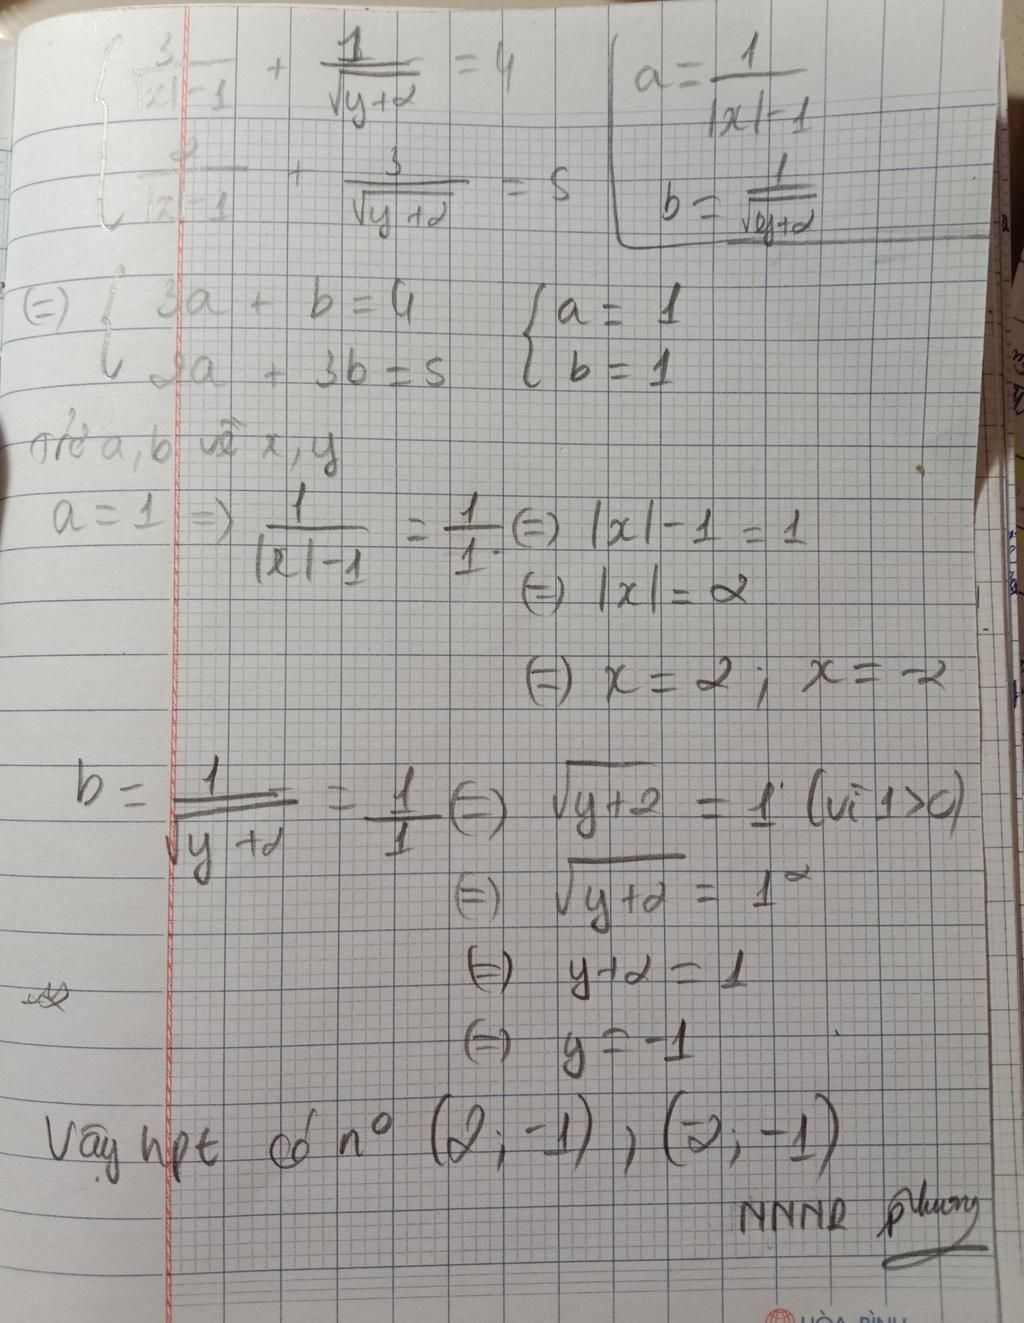 { 3/(|x|-1) + 1/√(y+2) = 4
2/(|x|-1) + 3/√(y+2) = 5
a = 1/(|x|-1)
b = 1/√(y+2)
(=) { 3a + b = 4
2a + 3b = 5
{ a = 1
b = 1
a, b về x, y
a = 1 => 1/(|x|-1) = 1/1 (=) |x|-1 = 1
(=) |x| = 2
(=) x = 2; x = -2
b = 1/√(y+2) = 1/1 (=) √(y+2) = 1 (vì 1>0)
(=) √(y+2) = 1²
(=) y+2 = 1
(=) y = -1
Vậy hpt có nº (2; -1), (-2; -1)
Phương
HÒA BÌNH